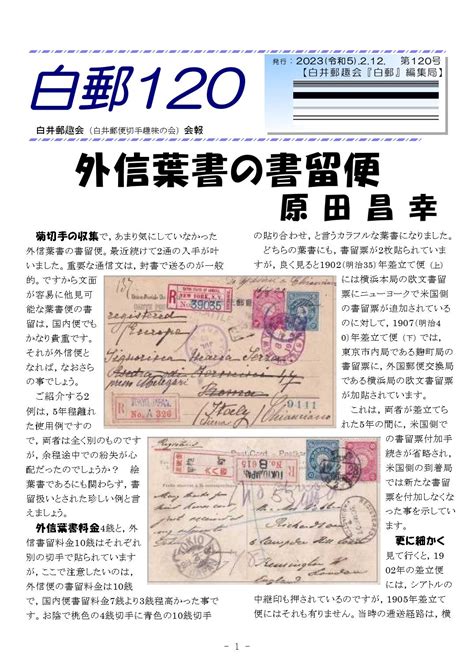 発行：2023(令和5).2.12.　第120号
【白井郵趣会『白郵』編集局】
白郵120
白井郵趣会（白井郵便切手趣味の会）会報
外信葉書の書留便
原田昌幸
菊切手の収集で，あまり気にしていなかった
外信葉書の書留便。最近続けて2通の入手が叶
いました。重要な通信文は，封書で送るのが一般
的。ですから文面
が容易に他見可
能な葉書便の書
留は，国内便でも
かなり貴重です。
それが外信便と
なれば，なおさら
の事でしょう。
ご紹介する2
例は，5年程離れ
た使用例ですの
で，両者は全く別のものです
が，余程途中での紛失が心
配だったのでしょうか？　絵
葉書であるにも関わらず，書
留扱いとされた珍しい例と言
えましょう。
外信葉書料金4銭と，外
信書留料金10銭はそれぞれ
別の切手で貼られています
が，ここで注意したいのは，
外信便の書留料金は10銭
で，国内便書留料金7銭より3銭程高かった事で
す。お陰で桃色の4銭切手に青色の10銭切手
の貼り合わせ，と言うカラフルな葉書になりました。
どちらの葉書にも，書留票が2枚貼られていま
すが，良く見ると1902(明治35)年差立て便（上）
には横浜本局の欧文書留
票にニューヨークで米国側
の書留票が追加されている
のに対して，1907(明治4
0)年差立て便（下）では，
東京市内局である麹町局の
書留票に，外国郵便交換局
である横浜局の欧文書留票
が加貼されています。
これは，両者が差立てら
れた5年の間に，米国側で
の書留票付加手
続きが省略され，
米国側の到着局
では新たな書留
票を付加しなくな
った事を示してい
ます。
更に細かく
見て行くと，19
02年の差立便
には，シアトルの
中継印も押されているのですが，1905年差立て
便にはそれも有りません。当時の逓送経路は，横
registered
Europe
NEW YORK, N.Y.
39035
Roma
Italy
A 326
9411
Post Card
London
England
TOKIO
- 1 -